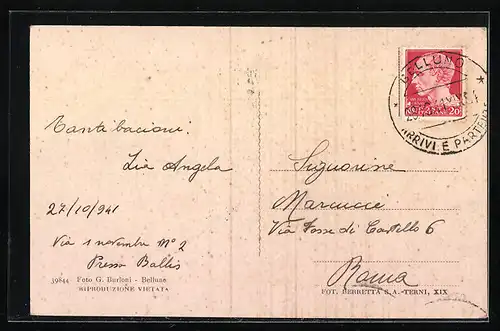 Tanti bacioni.
Zia Angela
27/10/941
Via 1 novembre Nº 2
Presso Balbis
39844 Foto G. Burloni - Belluno
RIPRODUZIONE VIETATA
BELLUNO
ARRIVI E PARTENZE
20
Signorine
Marcucci
Via Fosse di Castello 6
Roma
FOT. BERRETTA S.A. -TERNI, XIX